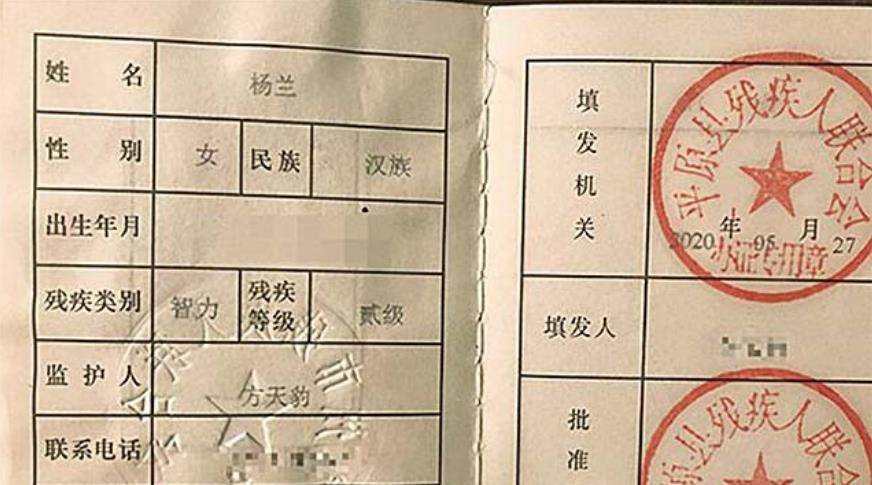 姓名 杨兰
性别 女 民族 汉族
出生年月
残疾类别 智力 残疾等级 贰级
监护人 方天豹
联系电话
填发机关
平原县残疾人联合会
2020年05月27
办证专用章
填发人
批准
原县残疾人联合